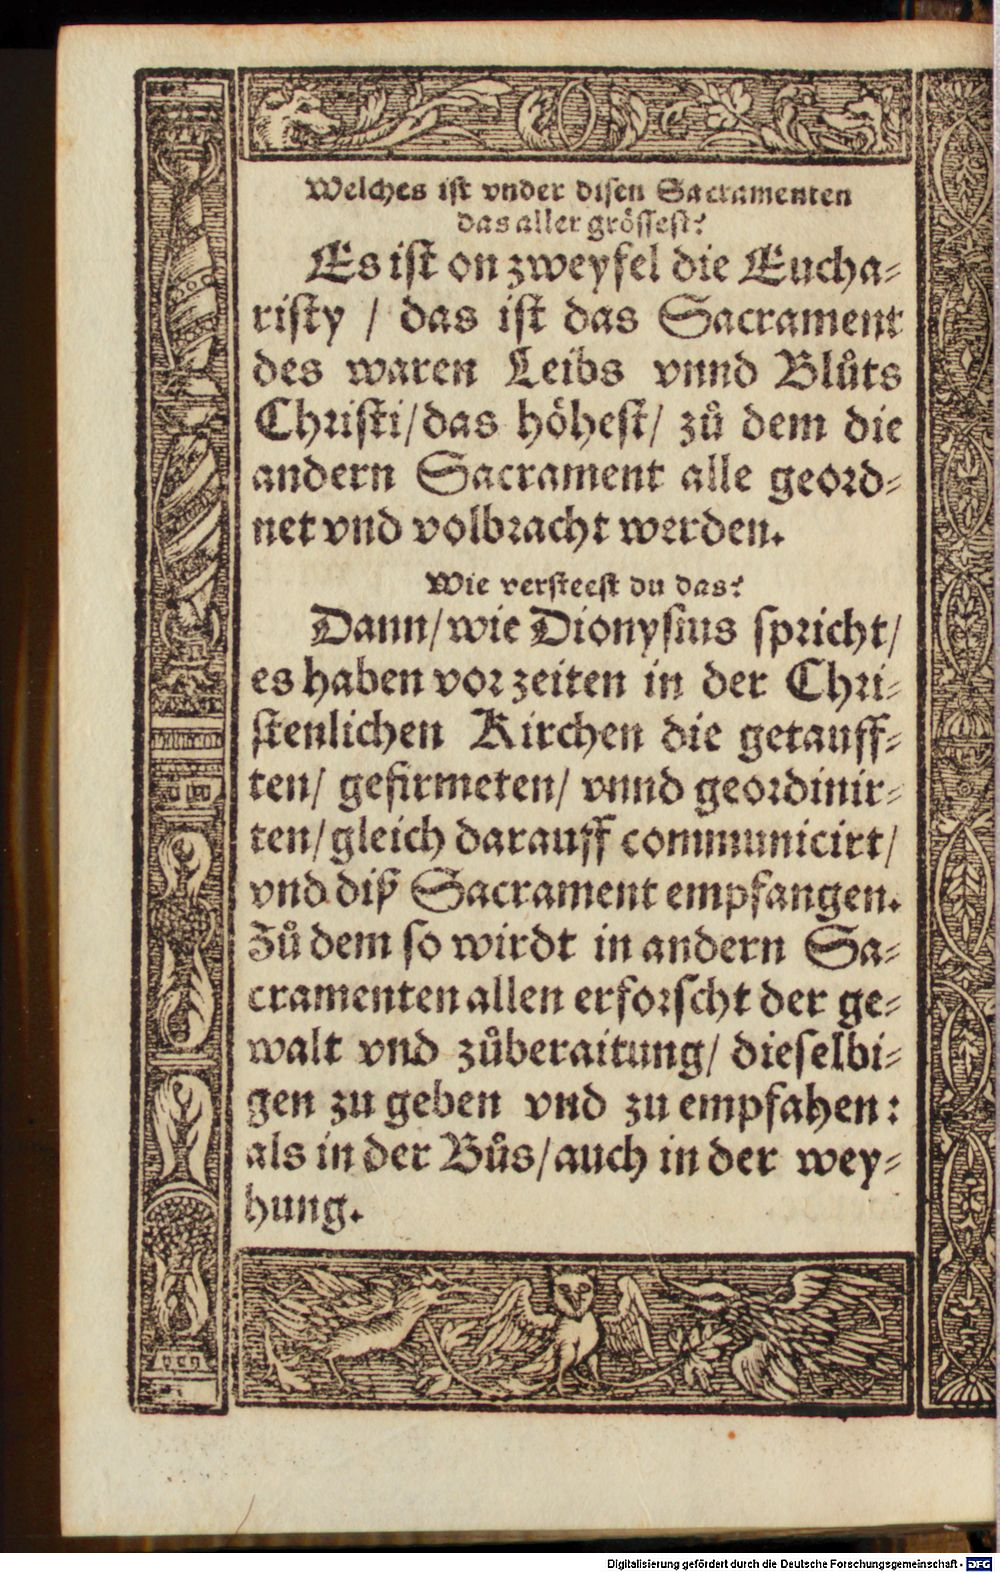 Welches ist vnder disen Sacramenten
das aller grössest?
Es ist on zweyfel die Eucha⸗
risty / das ist das Sacrament
des waren Leibs vnnd Blůts
Christi/ das höhest/ zů dem die
andern Sacrament alle geord⸗
net vnd volbracht werden.
Wie versteest du das?
Dann/ wie Dionysius spricht/
es haben vor zeiten in der Chri⸗
stenlichen Kirchen die getauff⸗
ten/ gefirmeten/ vnnd geordinir⸗
ten/ gleich darauff communicirt/
vnd diß Sacrament empfangen.
Zů dem so wirdt in andern Sa⸗
cramenten allen erforscht der ge⸗
walt vnd zůberaitung/ dieselbi⸗
gen zu geben vnd zu empfahen:
als in der Bůs/ auch in der wey⸗
hung.
Digitalisierung gefördert durch die Deutsche Forschungsgemeinschaft - DFG